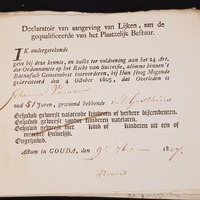 Declaratoir van aangeving van Lijken, aan de
gequalificeerde van het Plaatselijk Bestuur.
IK ondergetekende
geve bij deze kennis, en zulks ter voldoening aan het 24 Art.
der Ordonnantie op het Recht van Successie, alomme binnen 't
Bataafsch Gemeenebest introduceren, bij Hun Hoog Mogende
gearresteerd den 4 October 1805, dat Overleden is
Johanna
oud 51 Jaren, gewoond hebbende
Gehuwd geweest nalatende kinderen of verdere discendenten.
Gehuwd geweest zonder kinderen natelaten.
Gehuwd geweest met kind of kinderen uit een of
meerder Huwelijk.
Ongehuwd.
Actum in GOUDA, den 9 1807